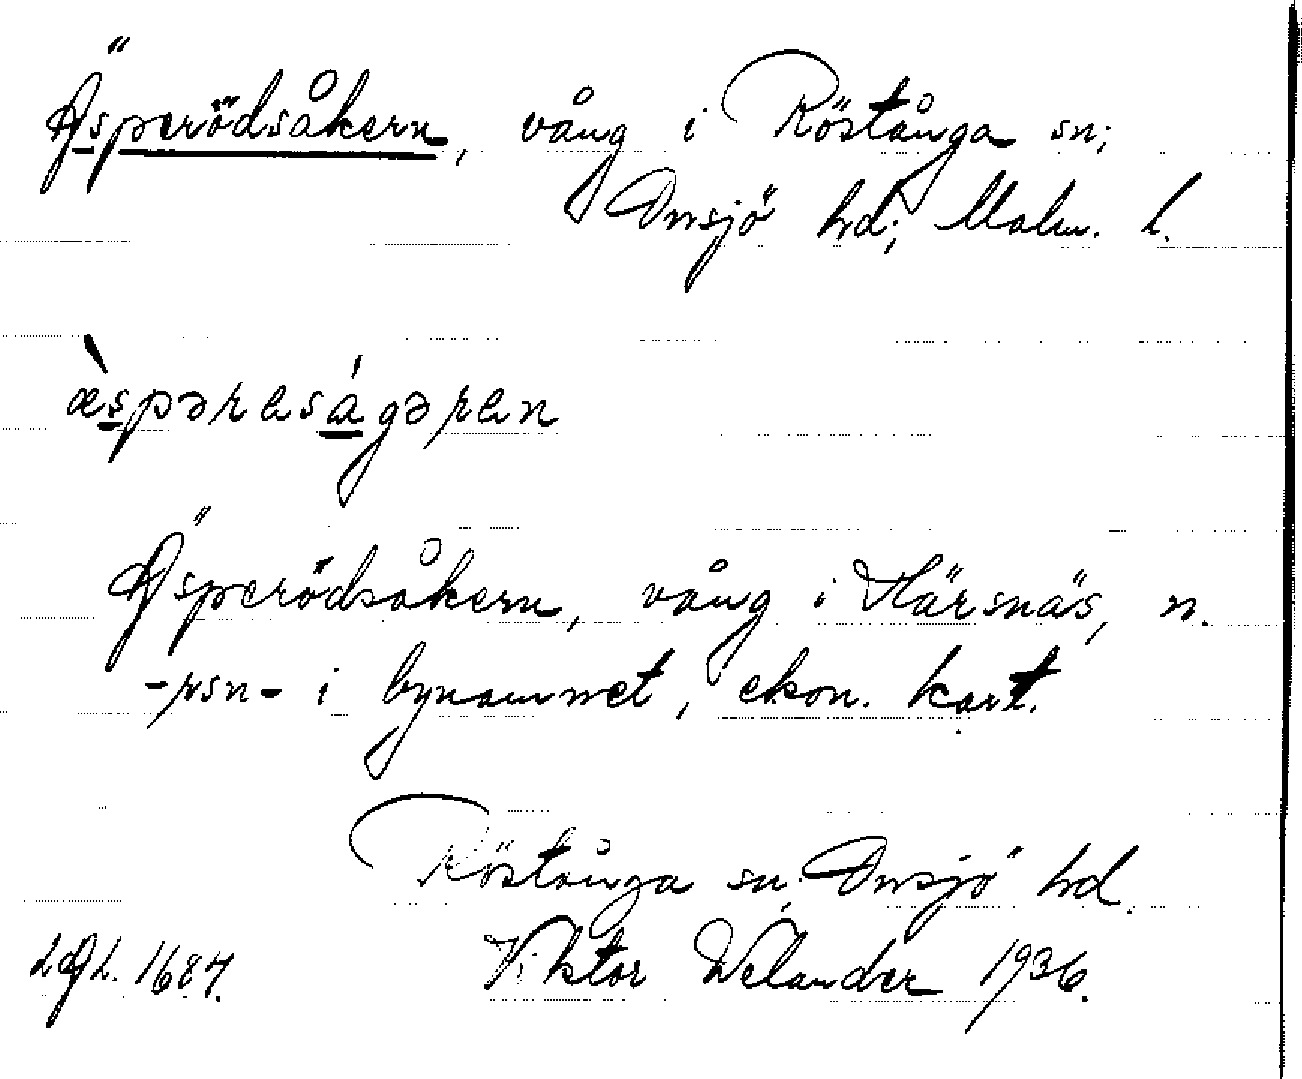 Äsperödsåkern, vång i Röstånga sn;
Onsjö hd; Malm. l.
æ̀spərɑságərɑn
Äsperödsåkern, vång i Härsnäs, n.
-rsn- i bynamnet, ekon. kart.
Röstånga sn. Onsjö hd.
LAL. 1687. Viktor Welander 1936.